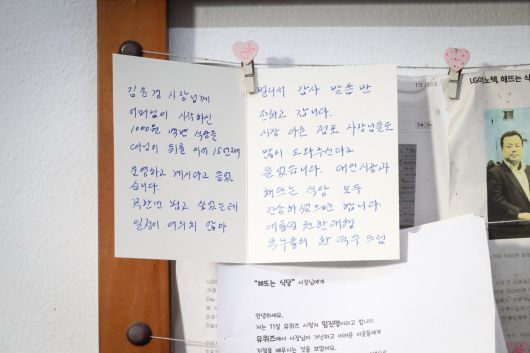 김윤경 사장님께
어머님이 시작하신
1000원 백반 식당을
따님이 뒤를 이어 15년째
운영하고 계시다고 들었
습니다.
꼭 한번 뵙고 싶었는데
일정이 여의치 않아
멀리서 감사 말씀만
전하고 갑니다.
시장 다른 점포 사장님들도
많이 도와주신다고
들었습니다. 대인시장과
해뜨는 식당 모두
건승하셨으면 합니다.
대통령 권한대행
국무총리 한덕수 드림
LG이노텍, 해뜨는 식당
"해뜨는 식당" 사장님에게
안녕하세요.
저는 11살 유퀴즈 시청자 임진영이라고 합니다.
유퀴즈에서 사장님이 가난하고 어려운 이웃들에게
친절을 베푸시는 것을 보았어요.